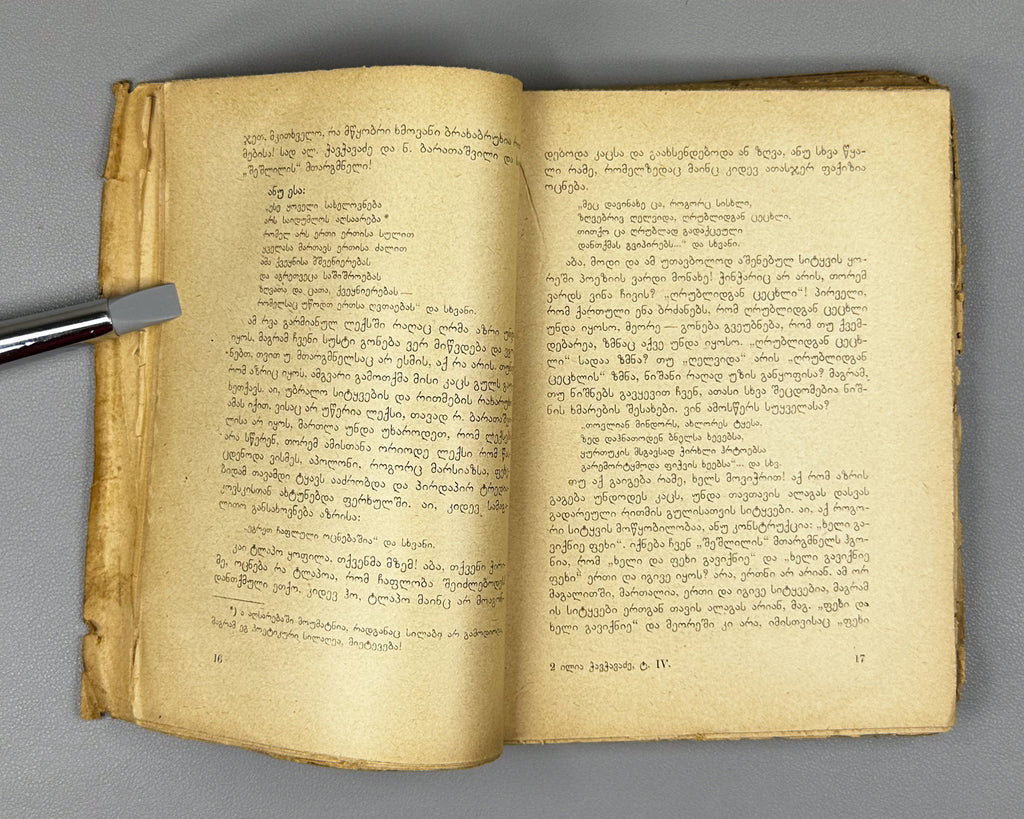 ჯეთ, მკითხველო, რა მწყობრი ხმოვანი ბრახაბრუხია
მებისა! სად ალ. ჭავჭავაძე და ნ. ბარათაშვილი და
„შეშლილის“ მთარგმნელი!
ანუ ესა:
„ესე ყოველი სახელოვნება
არს საიდუმლოს აღსაარება *
რომელ არს ერთი ერთისა სულით
ყველასა მართავს ერთისა ძალით
ამა ქვეყნისა მშვენიერებას
და აგრეთვეცა საშიშროებას
ზღვათა და ცათა, ქვეყნიერებას —
რომელსაც უწოდთ ერთსა ღვთაებას“ და სხვანი.
ამ რვა გარმიანულ ლექსში რაღაც ღრმა აზრი
იყოს, მაგრამ ჩვენი სუსტი გონება ვერ მიწვდება და
ნებთ. თვით უ. მთარგმნელსაც არ ესმის, აქ რა არის.
რომ აზრიც იყოს, ამგვარი გამოთქმა მისი კაცს გულს
ხეთქავს. აი, უბრალო სიტყვების და რითმების
ამას იქით, ვისაც არ უწერია ლექსი, თავად რ.
ლისა არ იყოს, მართლა უნდა უხაროდეთ, რომ
არა სწერენ, თორემ ამისთანა ორიოდე ლექსი რომ
ცდენოდა ვისმეს, აპოლონი, როგორც მარსიაზსა,
ბიდამ თავამდი ტყავს ააძრობდა და პირდაპირ
კოვსკისთან ახტუნებდა ფერხულში. აი, კიდევ
ლითო განსახოვნება აზრისა:
„ეგრეთ ჩაფლული ოცნებაშია“ და სხვანი.
კაი ტლაპო ყოფილა, თქვენმა მზემ! აბა, თქვენი
მე, ოცნება რა ტლაპოა, რომ ჩაფლობა
დანთქმული ეთქო, კიდევ ჰო, ტლაპო მაინც არ
*) ა აღსარებაში მოუმატნია, რადგანაც სილაბი არ
მაგრამ ეგ პოეტიკური სილაღეა, მიეტევება!
16
დებოდა კაცსა და გაახსენდებოდა ან ზღვა, ანუ სხვა წყა-
ლი რამე, რომელზედაც მაინც კიდევ ათასჯერ ფაქიზია
ოცნება.
„მეც დავინახე ცა, როგორც სისხლი,
ზღვებრივ ღელვიდა, ღრუბლიდგან ცეცხლი,
თითქო ცა ღრუბლად გადაქცეული
დანთქმას გვიპირებს...“ და სხვანი.
აბა, მოდი და ამ უთავბოლოდ აშენებულ სიტყვის ყო-
რეში პოეზიის ვარდი მონახე! ჭინჭარიც არ არის, თორემ
ვარდს ვინა ჩივის? „ღრუბლიდგან ცეცხლი“! პირველი,
რომ ქართული ენა ბრძანებს, რომ ღრუბლიდგან ცეცხლი
უნდა იყოსო, მეორე — გონება გვეუბნება, რომ თუ ქვემ-
დებარეა, ზმნაც აქვე უნდა იყოსო. „ღრუბლიდგან ცეცხ-
ლი“ სადაა ზმნა? თუ „ღელვიდა“ არის „ღრუბლიდგან
ცეცხლის“ ზმნა, ნიშანი რაღად უზის განყოფისა? მაგრამ,
თუ ნიშნებს გავყევით ჩვენ, ათასი სხვა შეცდომებია ნიშ-
ნის ხმარების შესახები. ვინ ამოსწერს სუყველასა?
„თოვლიან მინდორს, ახლორეს ტყესა,
ზედ დაჰნათოდენ ბნელსა ხევებსა,
ყურთუკის მსგავსად ჭირხლი ჰრტოებსა
გარემორტყმოდა ფიჭვის ხეებსა“... და სხვ.
თუ აქ გაიგება რამე, ხელს მოვიჭრით! აქ რომ აზრის
გაგება უნდოდეს კაცს, უნდა თავთავის ალაგას დასვას
გადარეული რითმის გულისათვის სიტყვები. აი, აქ როგო-
რი სიტყვის მოწყობილობაა, ანუ კონსტრუკცია: „ხელი გა-
ვიქნიე ფეხი“. იქნება ჩვენ „შეშლილის“ მთარგმნელს ჰგო-
ნია, რომ „ხელი და ფეხი გავიქნიე“ და „ხელი გავიქნიე
ფეხი“ ერთი და იგივე იყოს? არა, ერთნი არ არიან. ამ ორ
მაგალითში, მართალია, ერთი და იგივე სიტყვებია, მაგრამ
ის სიტყვები ერთგან თავის ალაგას არიან, მაგ. „ფეხი და
ხელი გავიქნიე“ და მეორეში კი არა, იმისთვისაც „ფეხი
2 ილია ჭავჭავაძე, ტ. IV.
17